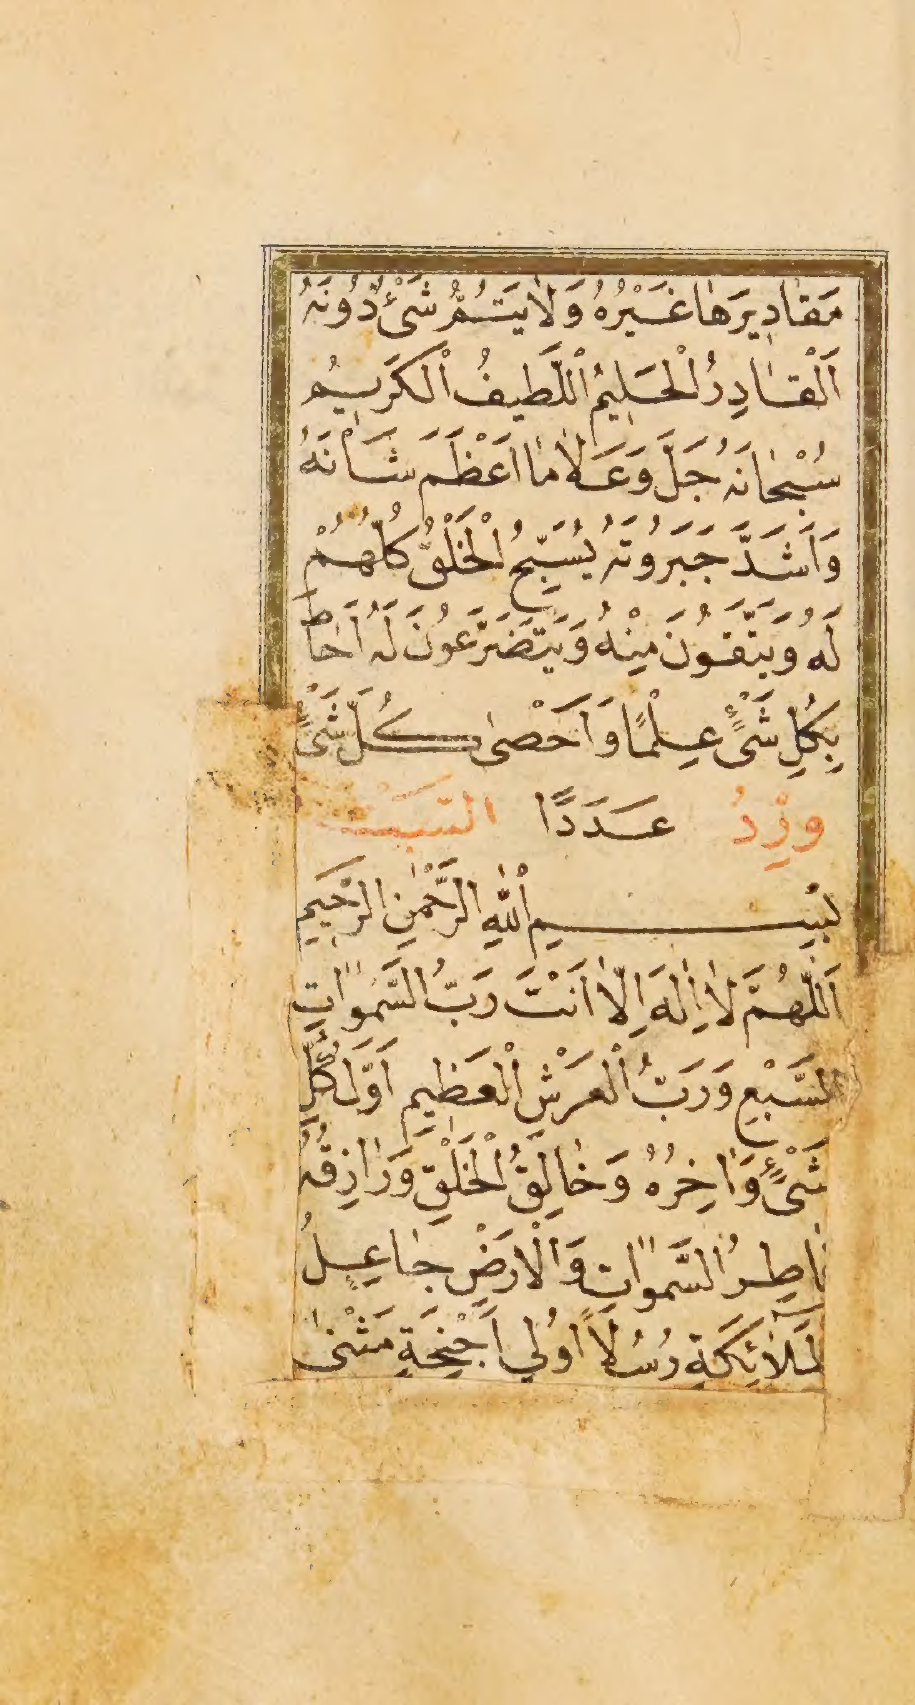 مَقَادِيرَهَا غَيْرُهُ وَلَا يَتَمُّ شَيْءٌ دُونَهُ
اَلْقَادِرُ الْحَلِيمُ اللَّطِيفُ الْكَرِيمُ
سُبْحَانَهُ جَلَّ وَعَلَا مَا اَعْظَمَ شَأْنَهُ
وَاَشَدَّ جَبَرُوتَهُ يُسَبِّحُ الْخَلْقُ كُلُّهُمْ
لَهُ وَيَتَّقُونَ مِنْهُ وَيَتَضَرَّعُونَ لَهُ اَحَاطَ
بِكُلِّ شَيْءٍ عِلْمًا وَاَحْصٰى كُلَّ شَيْءٍ
عَدَدًا وِرْدُ السَّبْت
بِسْمِ اللّٰهِ الرَّحْمٰنِ الرَّحِيمِ
اَللّٰهُمَّ لَا اِلٰهَ اِلَّا اَنْتَ رَبُّ السَّمٰوَاتِ
السَّبْعِ وَرَبُّ الْعَرْشِ الْعَظِيمِ اَوَّلُ كُلِّ
شَيْءٍ وَاٰخِرُهُ وَخَالِقُ الْخَلْقِ وَرَازِقُهُ
فَاطِرُ السَّمٰوَاتِ وَالْاَرْضِ جَاعِلُ
الْمَلَآئِكَةِ رُسُلًا اُولِي اَجْنِحَةٍ مَثْنٰى